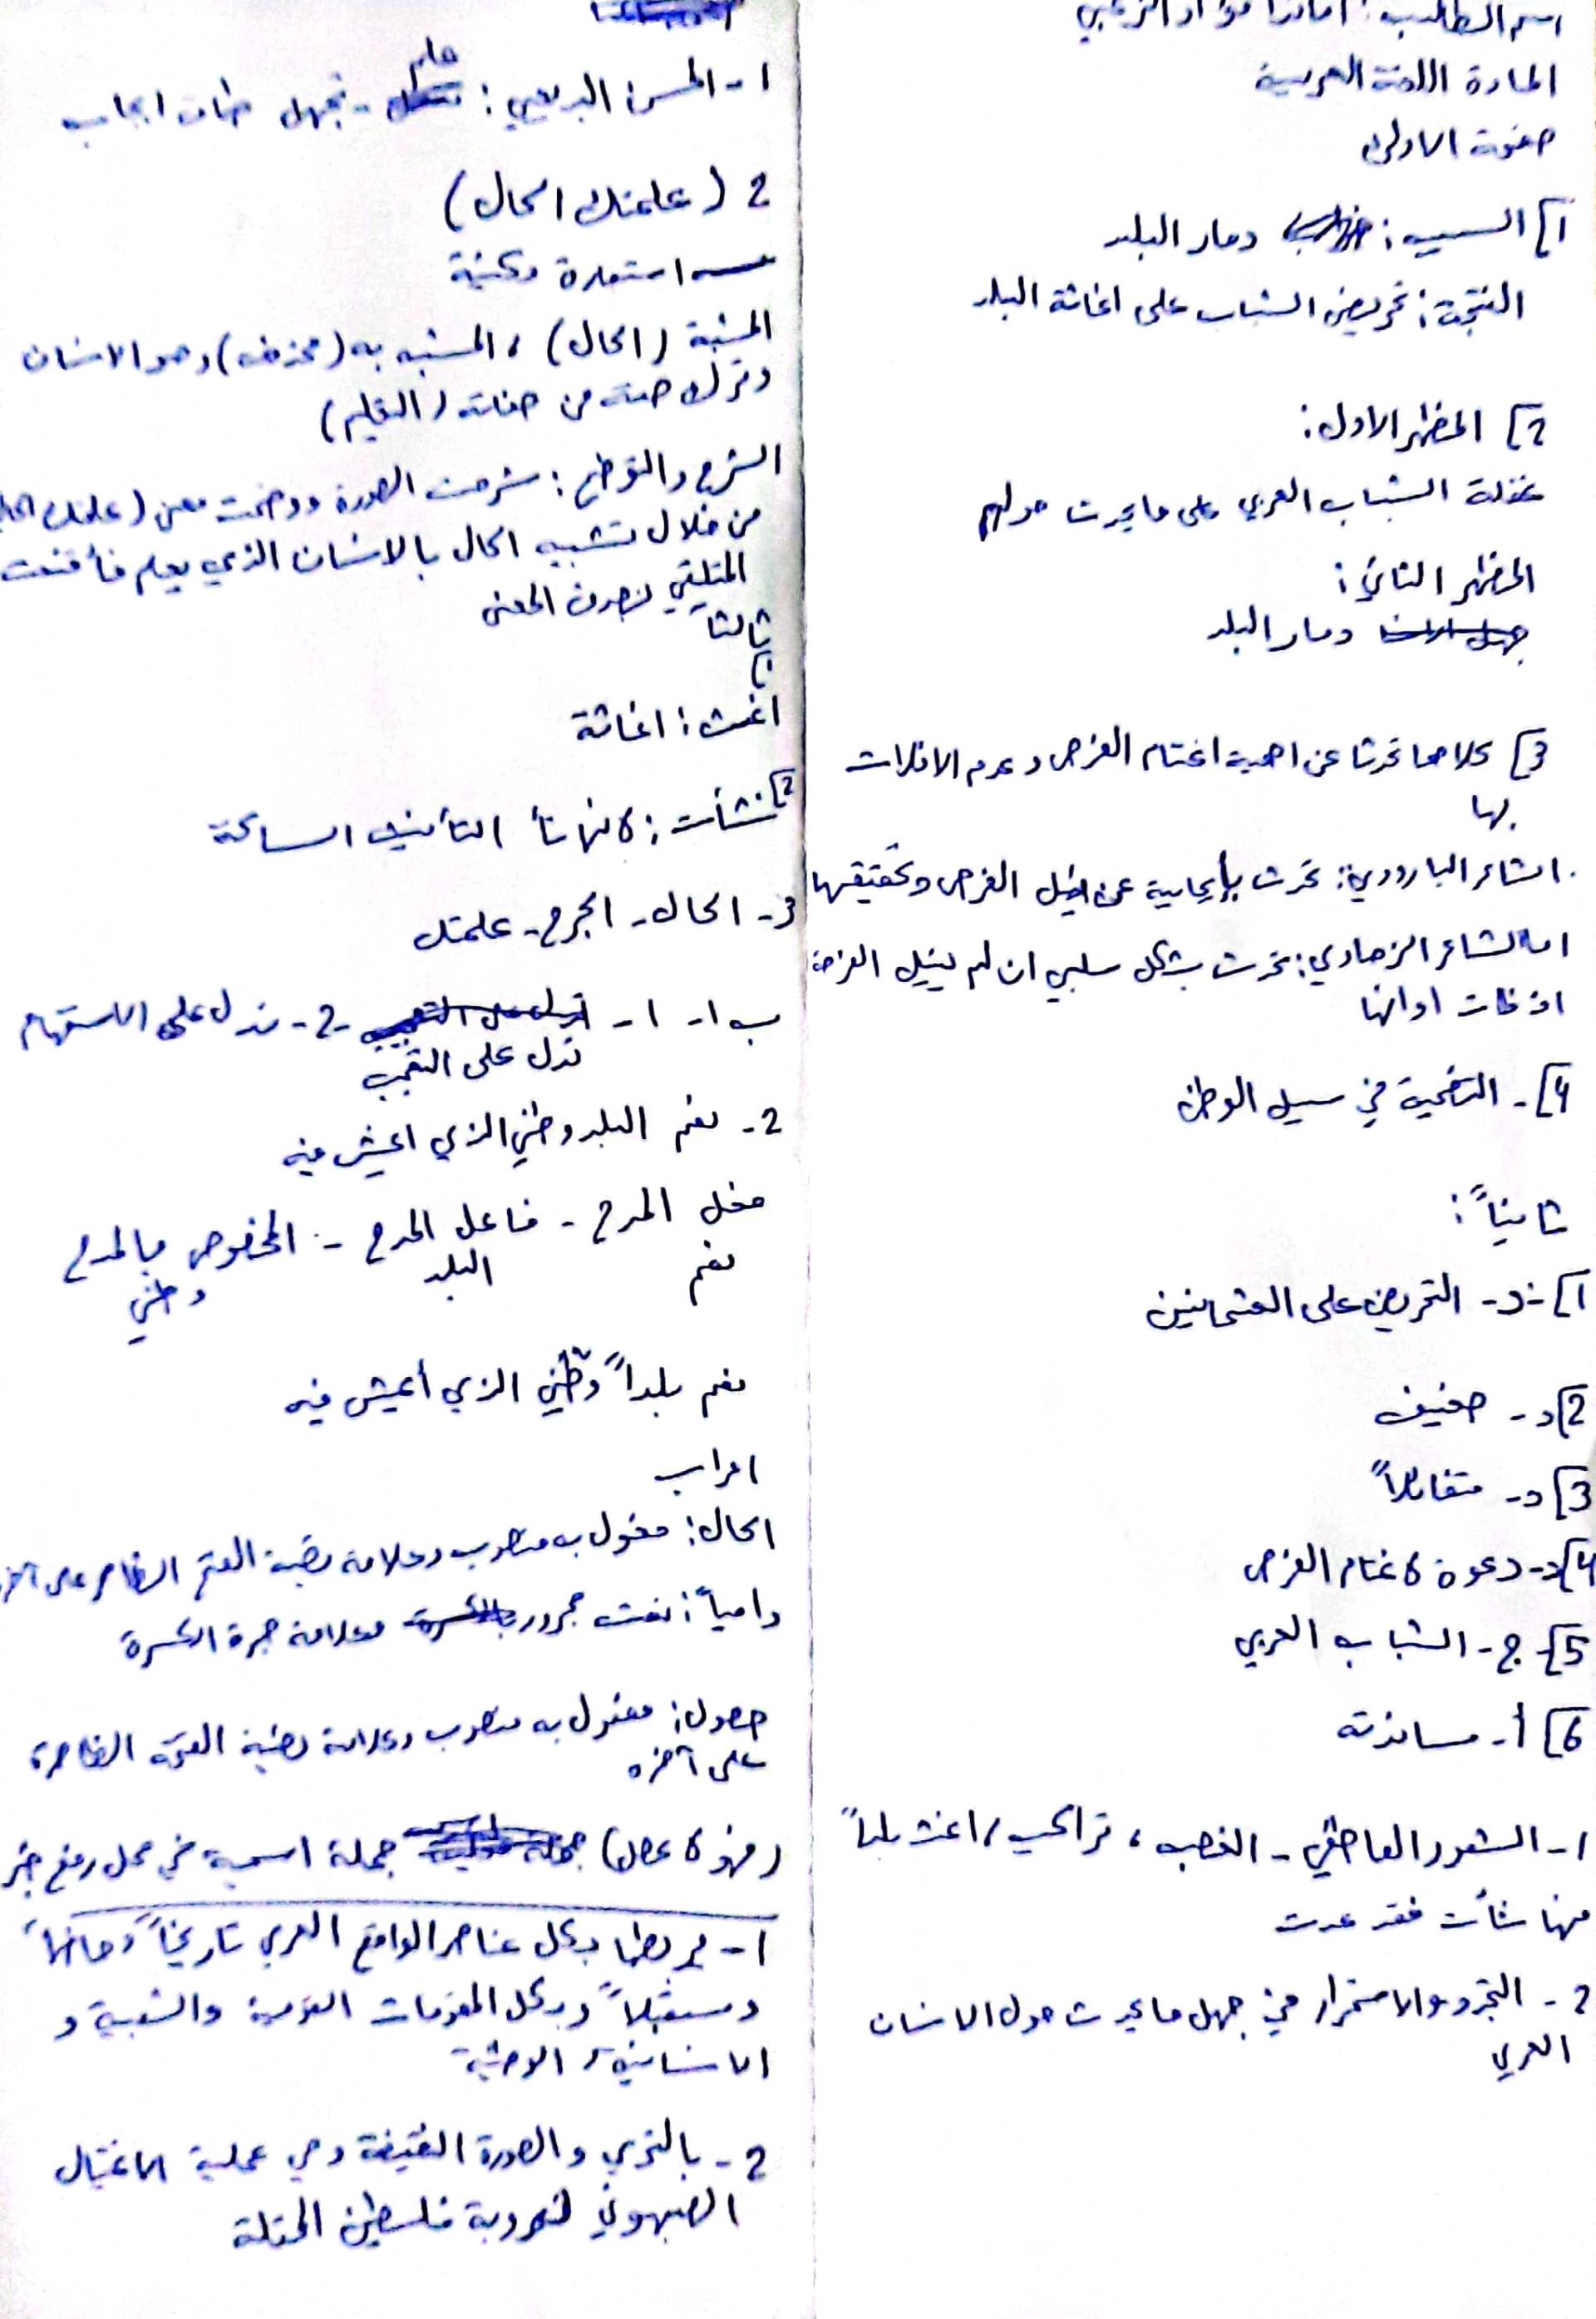 اسم الطالب:
المادة اللغة العربية
صفوة الاولى
1] السبب: دمار البلد
النتيجة: تحريض الشباب على اغاثة البلد
2] المظهر الاول:
غفلة الشباب العربي على ما يحدث حولهم
المظهر الثاني:
دمار البلد
3] كلاهما تحدثا عن اهمية اغتنام الفرص وعدم الافلات
بها
الشاعر البارودي: تحدث بإيجابية عن نيل الفرص وتحقيقها
اما الشاعر الزهاوي: تحدث بشكل سلبي ان لم ينيل الفرصة
اذ فات اوانها
4]- التضحية في سبيل الوطن
ثانياً:
1]-د- التحريض على العثمانيين
2]د- خفيف
3]د- متفائلاً
4]د- دعوة لاغتنام الفرص
5]- ج- الشباب العربي
6] أ- مساندته
1- الشعور العاطفي - الغضب، تراكيب / اغث بلداً
منها نشأت فقد عدت
2- التجرد والاستمرار في جهل ما يحدث حول الانسان
العربي
1- المحسن البديعي: علم - تجهل طباق ايجاب
2 (علمتك الحال)
استعارة مكنية
المشبة (الحال)، المشبه به (محذف) وهو الانسان
وترك صفة من صفاته (التعليم)
الشرح والتوضيح: شرحت الصورة ووضحت معنى (علمتك الحال
من خلال تشبيه الحال بالانسان الذي يعلم فأقنعت
المتلقي بصدق المعنى
ثالثاً
1]
اغث: اغاثة
2] نشأت: لانها تأ التأنيث الساكنة
3- الحال - الجرح - علمتك
ب 1- 1- تدل على التعجب -2- تدل على الاستفهام
تدل على التعجب
2- نعم البلد وطني الذي اعيش فيه
فعل المدح - فاعل المدح - المخصوص بالمدح
نعم البلد وطني
نعم بلداً وطني الذي أعيش فيه
اعراب
الحال: مفعول به منصوب وعلامة نصبة الفتح الظاهر على آخره
دامياً: نعت مجرور وعلامة جرة الكسرة
حصول: مفعول به منصوب وعلامة نصبة الفتحه الظاهرة
على آخره
جملة اسمية في محل رفع خبر
1- بربطها بكل عناصر الواقع العربي تاريخاً وحاضراً
ومستقبلاً وبكل المقومات القومية والشعبية و
الانسانية
2- بالتحدي والصورة العنيفة وهي عملية الاغتيال
الصهيوني لعروبة فلسطين المحتلة